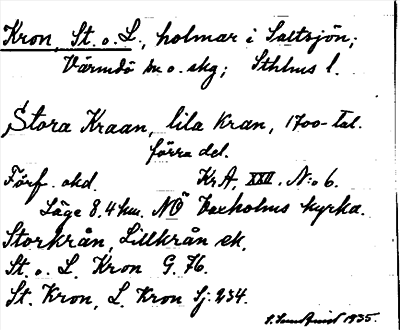 Kron, St. o. L., holmar i Saltsjön;
Värmdö sn o. skg; Sthlms l.
Stora Kraan, lila Kran, 1700-tal.
förra del.
Förf. okd. KrA, XXII. N:o 6.
Läge 8,4 km. NÖ Vaxholms kyrka.
Storkrån, Lillkrån ek.
St. o. L. Kron G. 76.
St. Kron, L. Kron Sj. 234.
1935